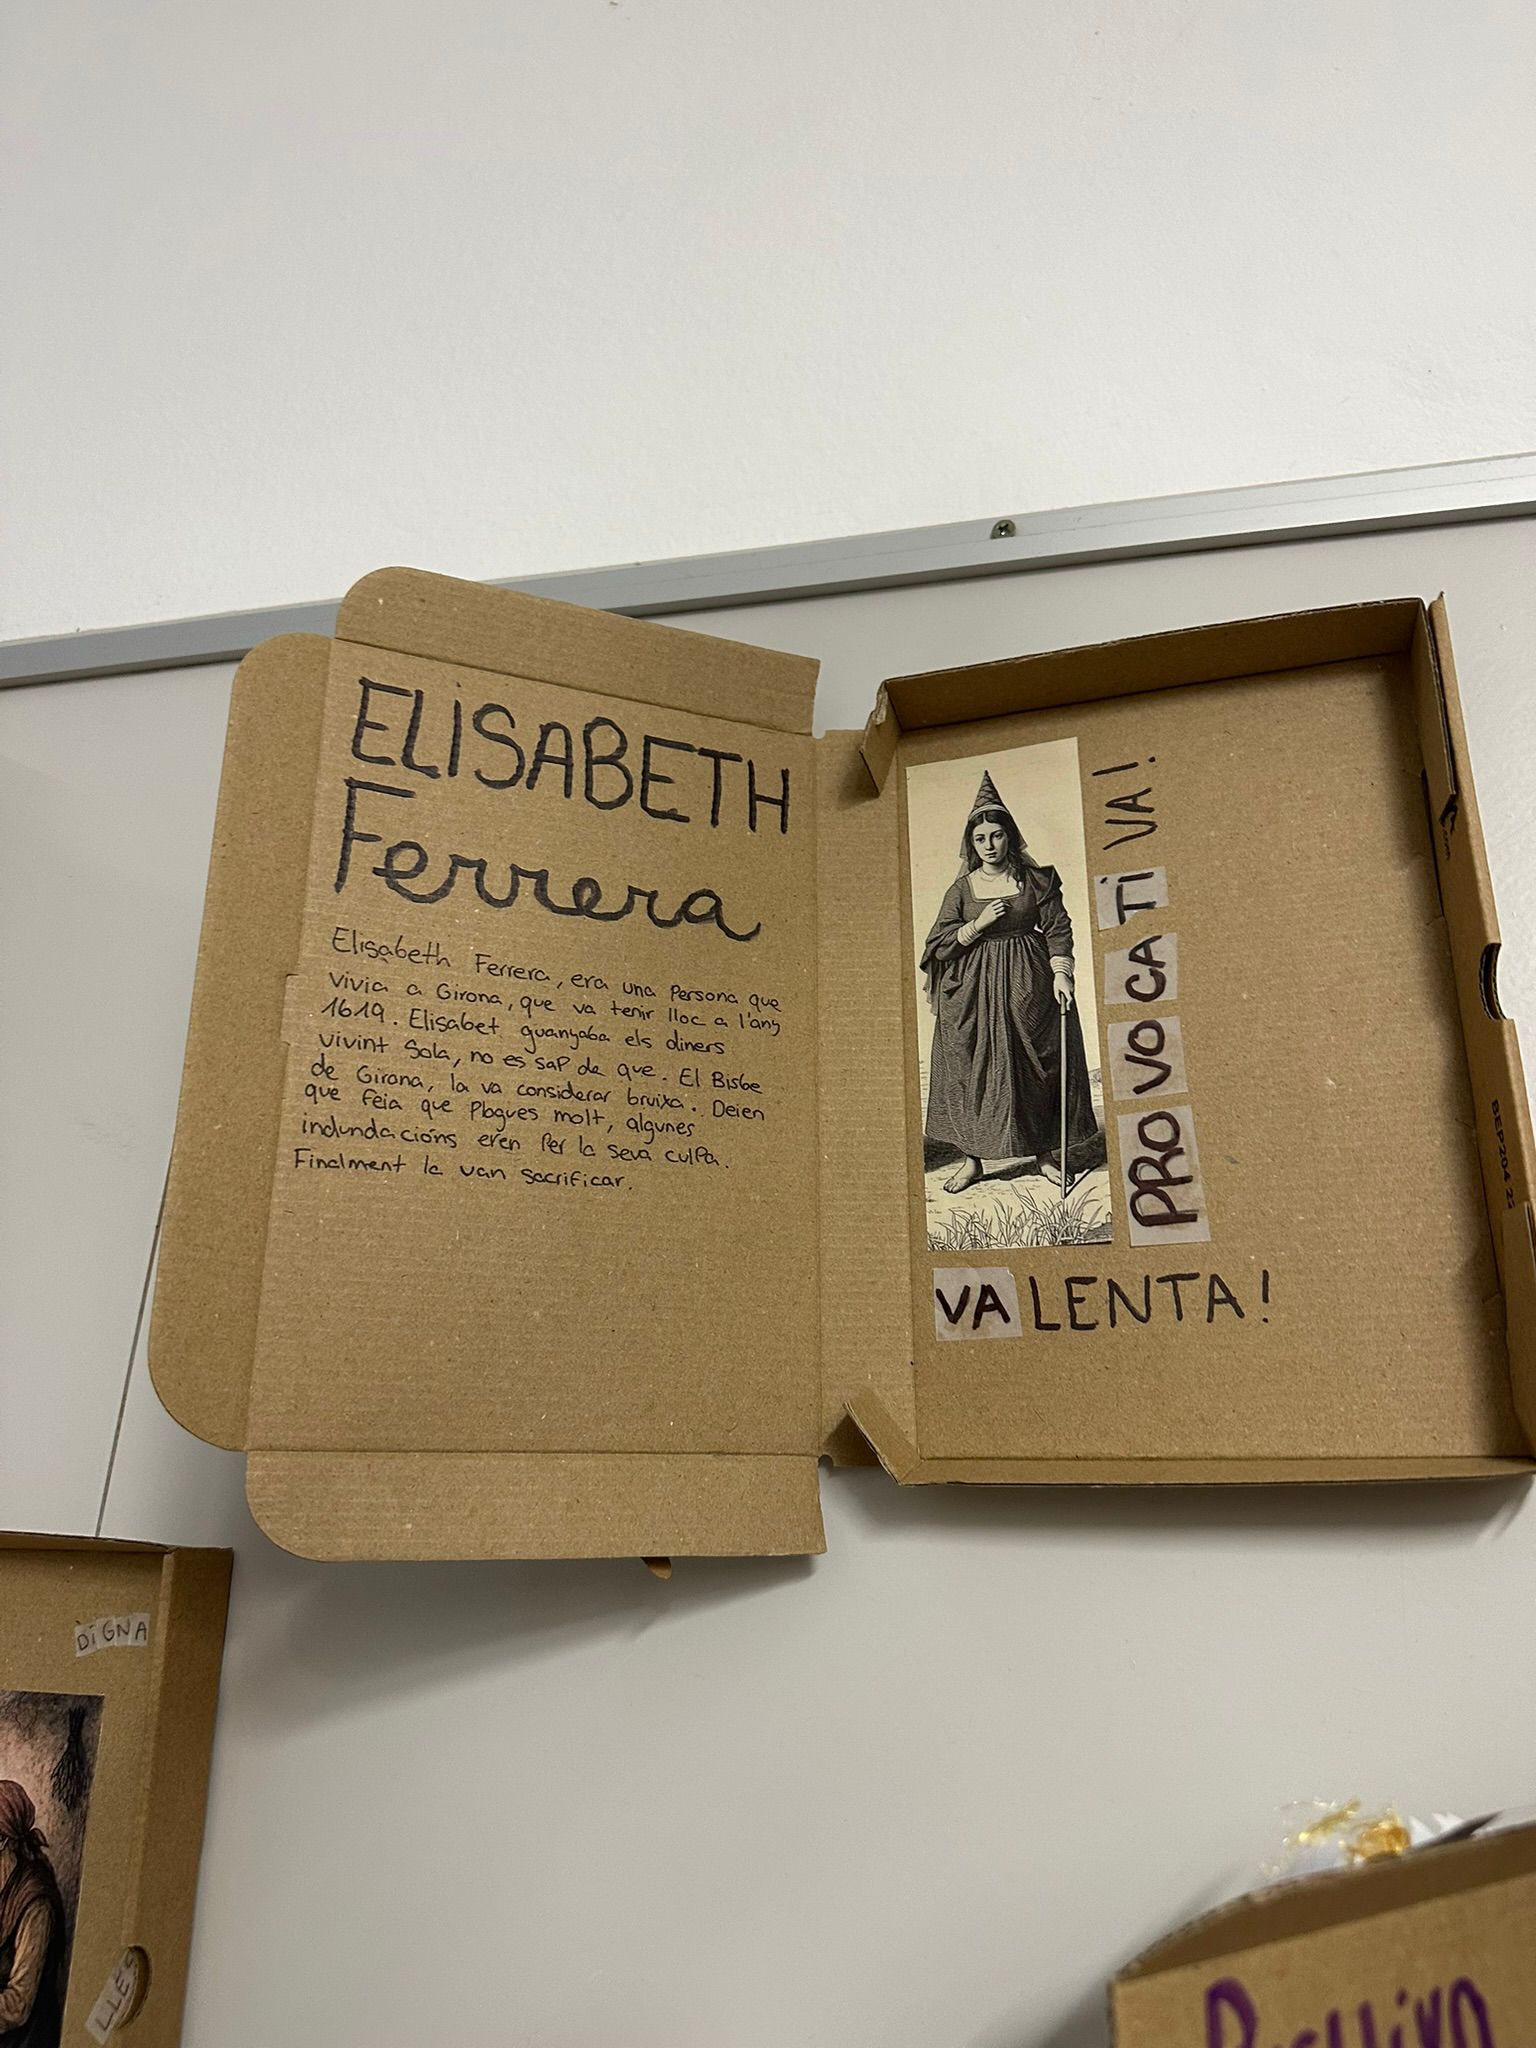 ELISABETH
Ferrera
Elisabeth Ferrera, era una Persona que
vivia a Girona, que va tenir lloc a l'any
1619. Elisabet guanyaba els diners
vivint Sola, no es saP de que. El Bisbe
de Girona, la va considerar bruixa. Deien
que feia que Plogues molt, algunes
indundacións eren Per la seva culPa.
Finalment la van sacrificar.
PROVOCATIVA!
VALENTA!
BEP204 23
DIGNA
LLES